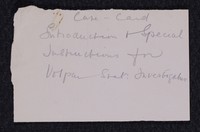 Case - Card
Introduction & Special
Instructions for
Vesper Boat Investigation